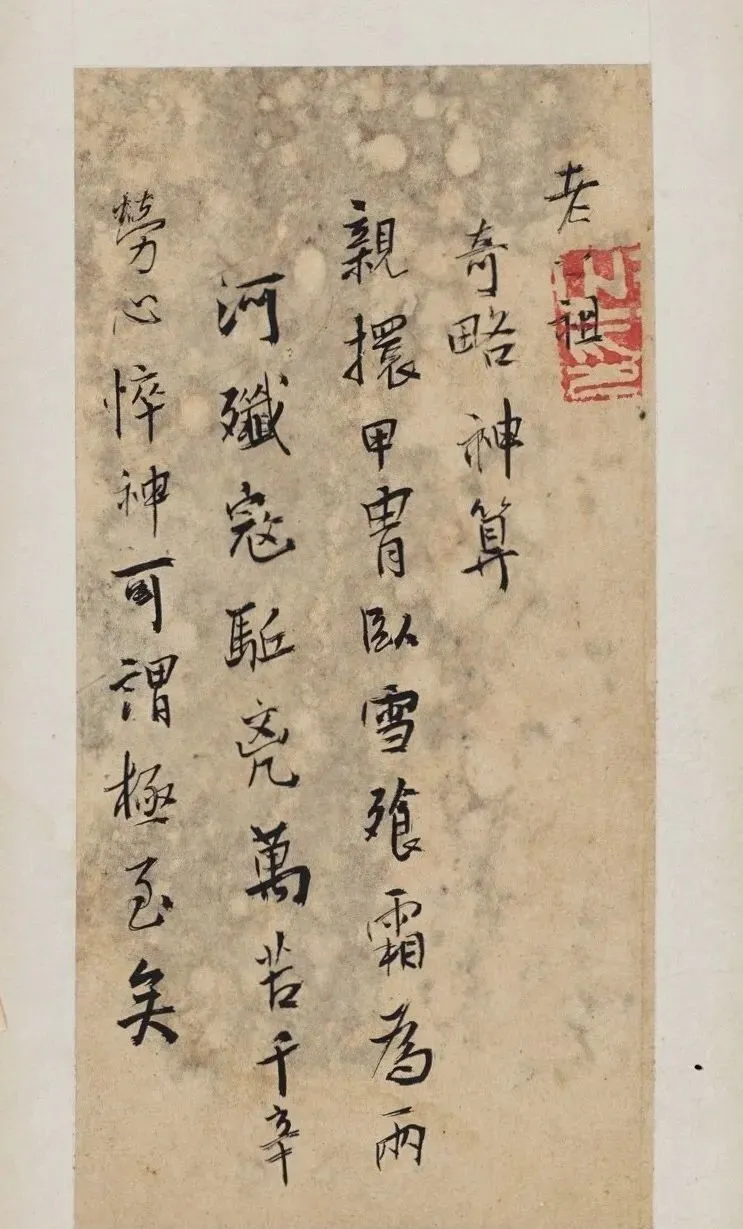 老公祖
奇略神算
親擐甲冑臥雪飱霜為兩
河殲寇駈兇萬苦千辛
勞心悴神可謂極至矣